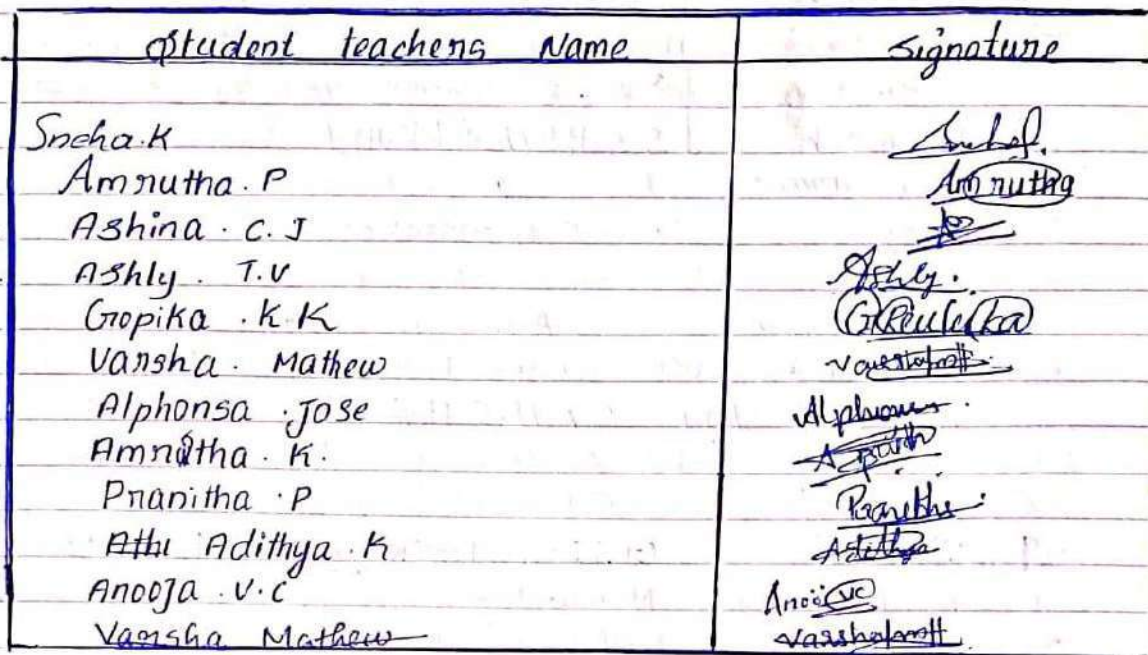 Student teachers Name Signature
Sneha.K Sneha
Amrutha. P Amrutha
Ashina. C. J
Ashly. T.V Ashly.
Gopika. K.K
Varsha. Mathew Varsha
Alphonsa. Jose Alphonsa
Amritha. K.
Pranitha. P Pranitha
Adithya. K Adithya
Anooja. V.C Anoo VC
Varsha Mathew Varsha